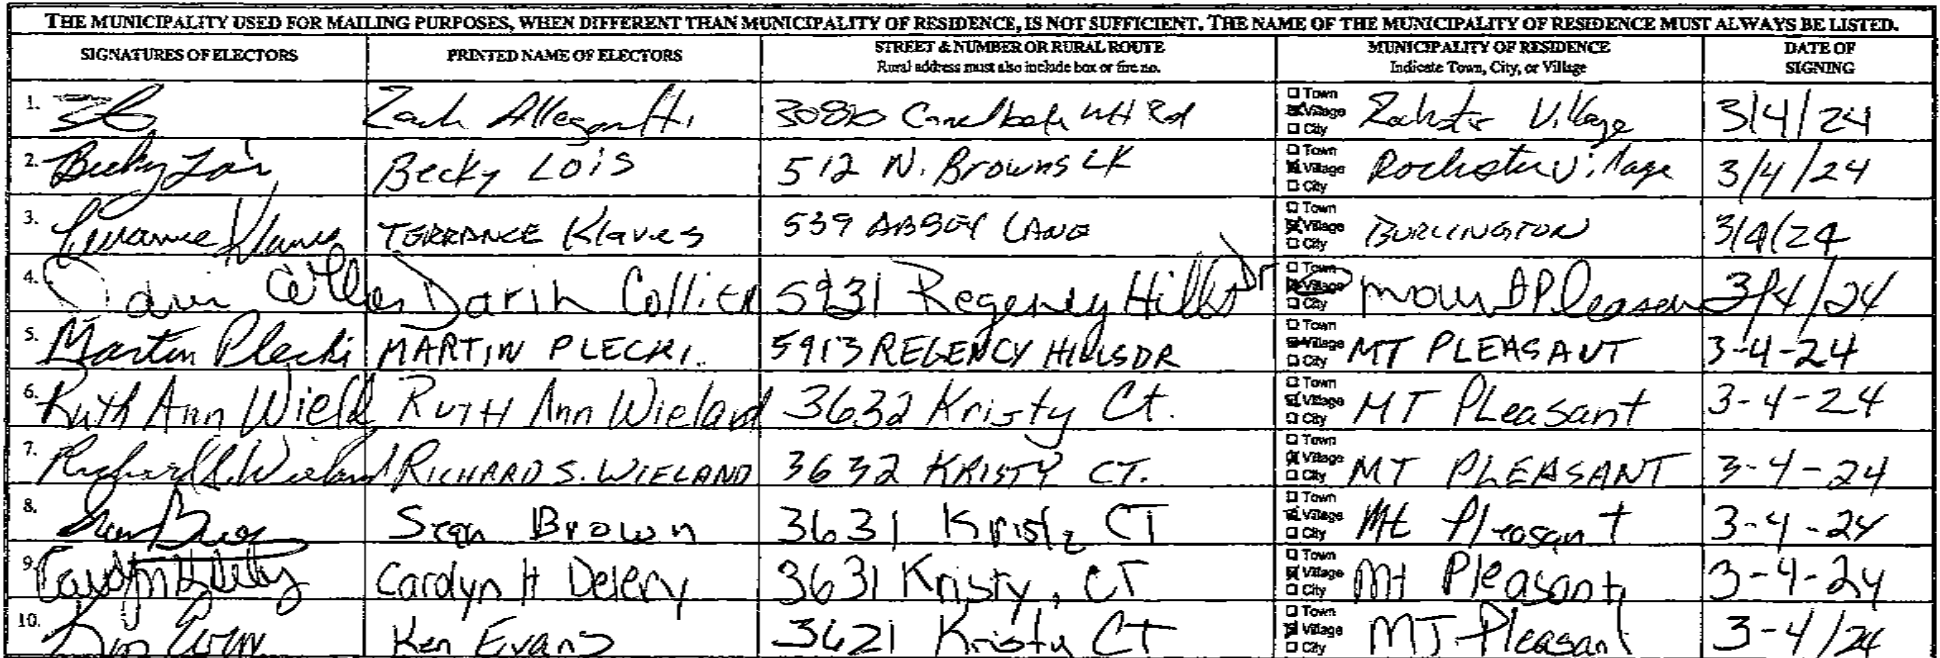 THE MUNICIPALITY USED FOR MAILING PURPOSES, WHEN DIFFERENT THAN MUNICIPALITY OF RESIDENCE, IS NOT SUFFICIENT. THE NAME OF THE MUNICIPALITY OF RESIDENCE MUST ALWAYS BE LISTED.
SIGNATURES OF ELECTORS PRINTED NAME OF ELECTORS STREET & NUMBER OR RURAL ROUTE MUNICIPALITY OF RESIDENCE DATE OF
Rural address must also include box or fire no. Indicate Town, City, or Village SIGNING
1. Zach 30810 Rd Town Village City Village 3/4/24
2. Becky Lois Becky Lois 512 N. Browns LK Town Village City Rochester Village 3/4/24
3. Terrance Klaves TERRANCE Klaves 539 ABBEY LANE Town Village City BURLINGTON 3/4/24
4. Darin Collier Darin Collier 5931 Regency Hills Dr Town Village City 3/4/24
5. Martin Plecki MARTIN PLECKI. 5913 REGENCY HILLS DR Town Village City MT PLEASANT 3-4-24
6. Ruth Ann Wield RUTH Ann Wieland 3632 Kristy Ct. Town Village City MT PLeasant 3-4-24
7. Richard S. Wieland RICHARD S. WIELAND 3632 KRISTY CT. Town Village City MT PLEASANT 3-4-24
8. Sean Brown 3631 CT Town Village City Mt Pleasant 3-4-24
9. Carolyn H Delery 3631 Kristy, CT Town Village City Mt Pleasant 3-4-24
10. Ken Evans 3621 Kristy CT Town Village City MT Pleasant 3-4/24